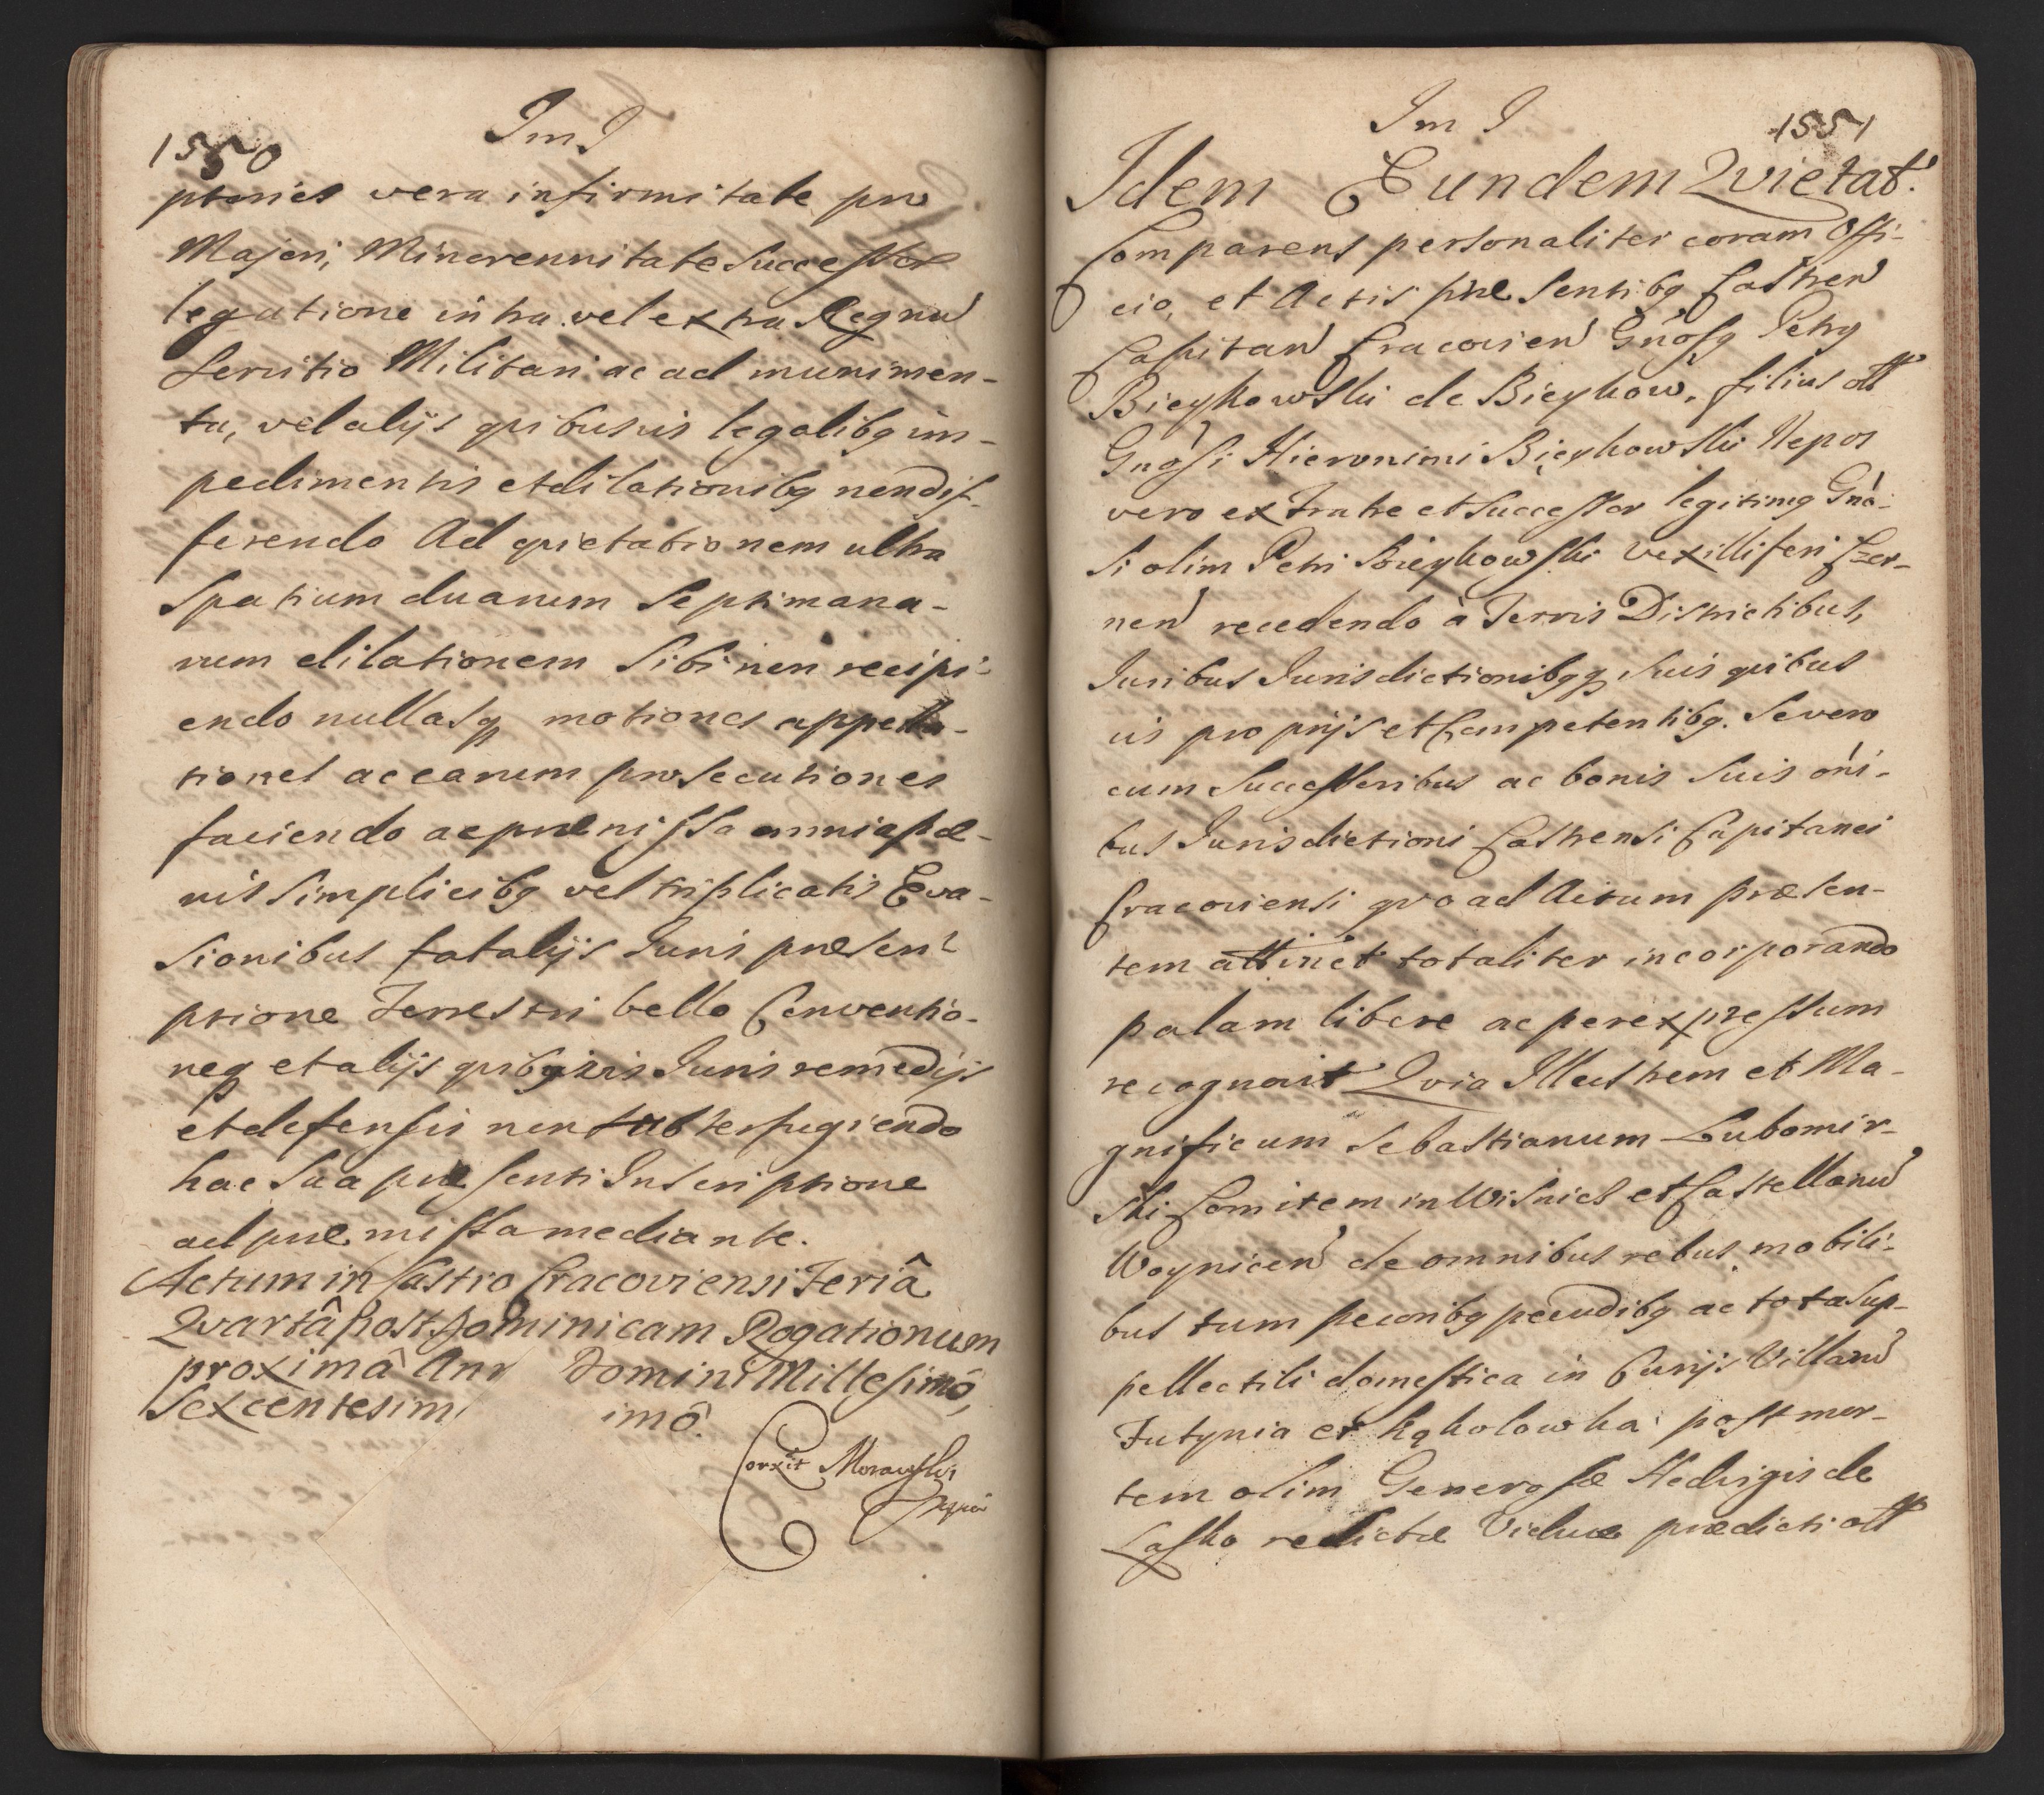 1550
Im I
ptories vera infirmitate pro
Majori, Minorennitate Successor
legatione intra vel extra Regnu
Servitio Militari ac ad munimen-
ta, vel alijs quibusvis legalibq im-
pedimentis et dilationibq non dif-
ferendo Ad quietationem ultra
Spatium duarum Septimana-
rum dilationem Sibi non recipi-
endo nullasq motiones appella-
tiones ac earum prosecutiones
faciendo ac præmissa omnia pæ-
nis Simplicibq vel triplicatis Eva-
sionibus fatalijs Juris præsen
ptione Terrestri bello Conventio-
neq et alijs quibqvis Juris remedijs
et defensis non subterfugiendo
hac Sua præsenti Inscriptione
ad præmissa mediante.
Actum in Castro Cracoviensi Feriâ
Qvartâ post Dominicam Rogationum
proximâ Ann Domini Millesimô,
Sexcentesim imô.
Corxit Morawski
1551
Im I
Idem Eundem Qvietat.
Comparens personaliter coram Offi-
cio, et Actis præsentibq Castren
Capitan Cracovien Gnosq Petrq
Bieykowski de Bieykow, filius olt
Gnosi Hieronimi Bieykowski Nepos
vero ex Fratre et Successor legitimq Gno-
si olim Petri Bieykowski Vexilliferi Czer-
nen recedendo à Terris Districtibus,
Juribus Jurisdictionibqq Suis quibus
vis proprijs et Competentibq. Se vero
cum Successoribus ac bonis Suis oni-
bus Jurisdictioni Castrensi Capitanei
Cracoviensi qvo ad Actum præsen-
tem attinet totaliter incorporando
palam libere ac per expressum
recognovit Qvia Illustrem et Ma-
gnificum Sebastianum Lubomir-
ski Comitem in Wisnicz et Castellanu
Woynicen de omnibus rebus mobili-
bus tum pecoribq pecudibq ac tota Sup-
pellectili domestica in Curijs Villaru
Futynia et Kąkolowka post mor-
tem olim Generosæ Hedvigis de
Lasko relictæ Viduæ prædicti olt